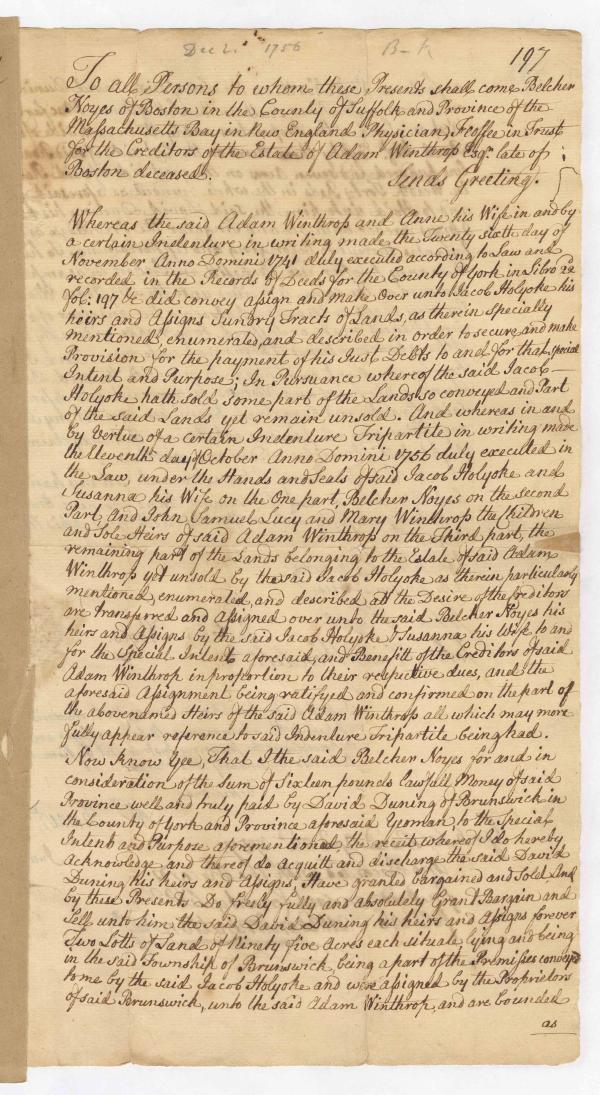 Dec 2. 1756 B-K
197
To all Persons to whom these Presents shall come Belcher
Noyes of Boston in the County of Suffolk and Province of the
Massachusetts Bay in New England Physician, Feoffee in Trust
for the Creditors of the Estate of Adam Winthrop Esqr. late of
Boston deceased. Sends Greeting.
Whereas the said Adam Winthrop and Anne his Wife in and by
a certain Indenture in writing made the Twenty sixth day of
November Anno Domini 1741 duly executed according to Law and
recorded in the Records of Deeds for the County of York in Libro 22
fol: 197 &c did convey assign and make Over unto Jacob Holyoke his
heirs and Assigns Sundry Tracts of Lands, as therein Specially
mentioned, enumerated, and described in order to secure and make
Provision for the payment of his Just Debts to and for that Special
Intent and Purpose; In Pursuance whereof the said Jacob
Holyoke hath sold some part of the Lands so conveyed and Part
of the said Lands yet remain unsold. And whereas in and
by Vertue of a certain Indenture Tripartite in writing made
the Eleventh day of October Anno Domini 1756 duly executed in
the Law, under the Hands and Seals of said Jacob Holyoke and
Susanna his Wife on the One part, Belcher Noyes on the second
Part, And John Samuel Lucy and Mary Winthrop the Children
and Sole Heirs of said Adam Winthrop on the Third part, the
remaining part of the Lands belonging to the Estate of said Adam
Winthrop yet unsold by the said Jacob Holyoke as therein particularly
mentioned, enumerated, and described att the Desire of the Creditors
are transferred and assigned over unto the said Belcher Noyes his
heirs and Assigns by the said Jacob Holyoke & Susanna his Wife to and
for the Special Intent aforesaid, and Benefitt of the Creditors of said
Adam Winthrop in proportion to their respective dues, and the
aforesaid Assignment being ratifyed and confirmed on the part of
the abovenamed Heirs of the said Adam Winthrop all which may more
fully appear reference to said Indenture Tripartite being had.
Now Know Yee, That I the said Belcher Noyes for and in
consideration of the Sum of Sixteen pounds Lawfull Money of said
Province well and truly paid by David Duning of Brunswick in
the County of York and Province aforesaid Yeoman, to the Special
Intent and Purpose aforementioned the receit whereof I do hereby
Acknowledge and thereof do Acquitt and discharge the said David
Duning his heirs and Assigns, Have granted bargained and Sold And
by these Presents Do freely fully and absolutely Grant Bargain and
Sell unto him the said David Duning his heirs and Assigns forever
Two Lotts of Land of Ninety five Acres each situate lying and being
in the said Township of Brunswick, being a part of the Premises convey'd
to me by the said Jacob Holyoke and were assigned by the Proprietors
of said Brunswick, unto the said Adam Winthrop, and are bounded
as